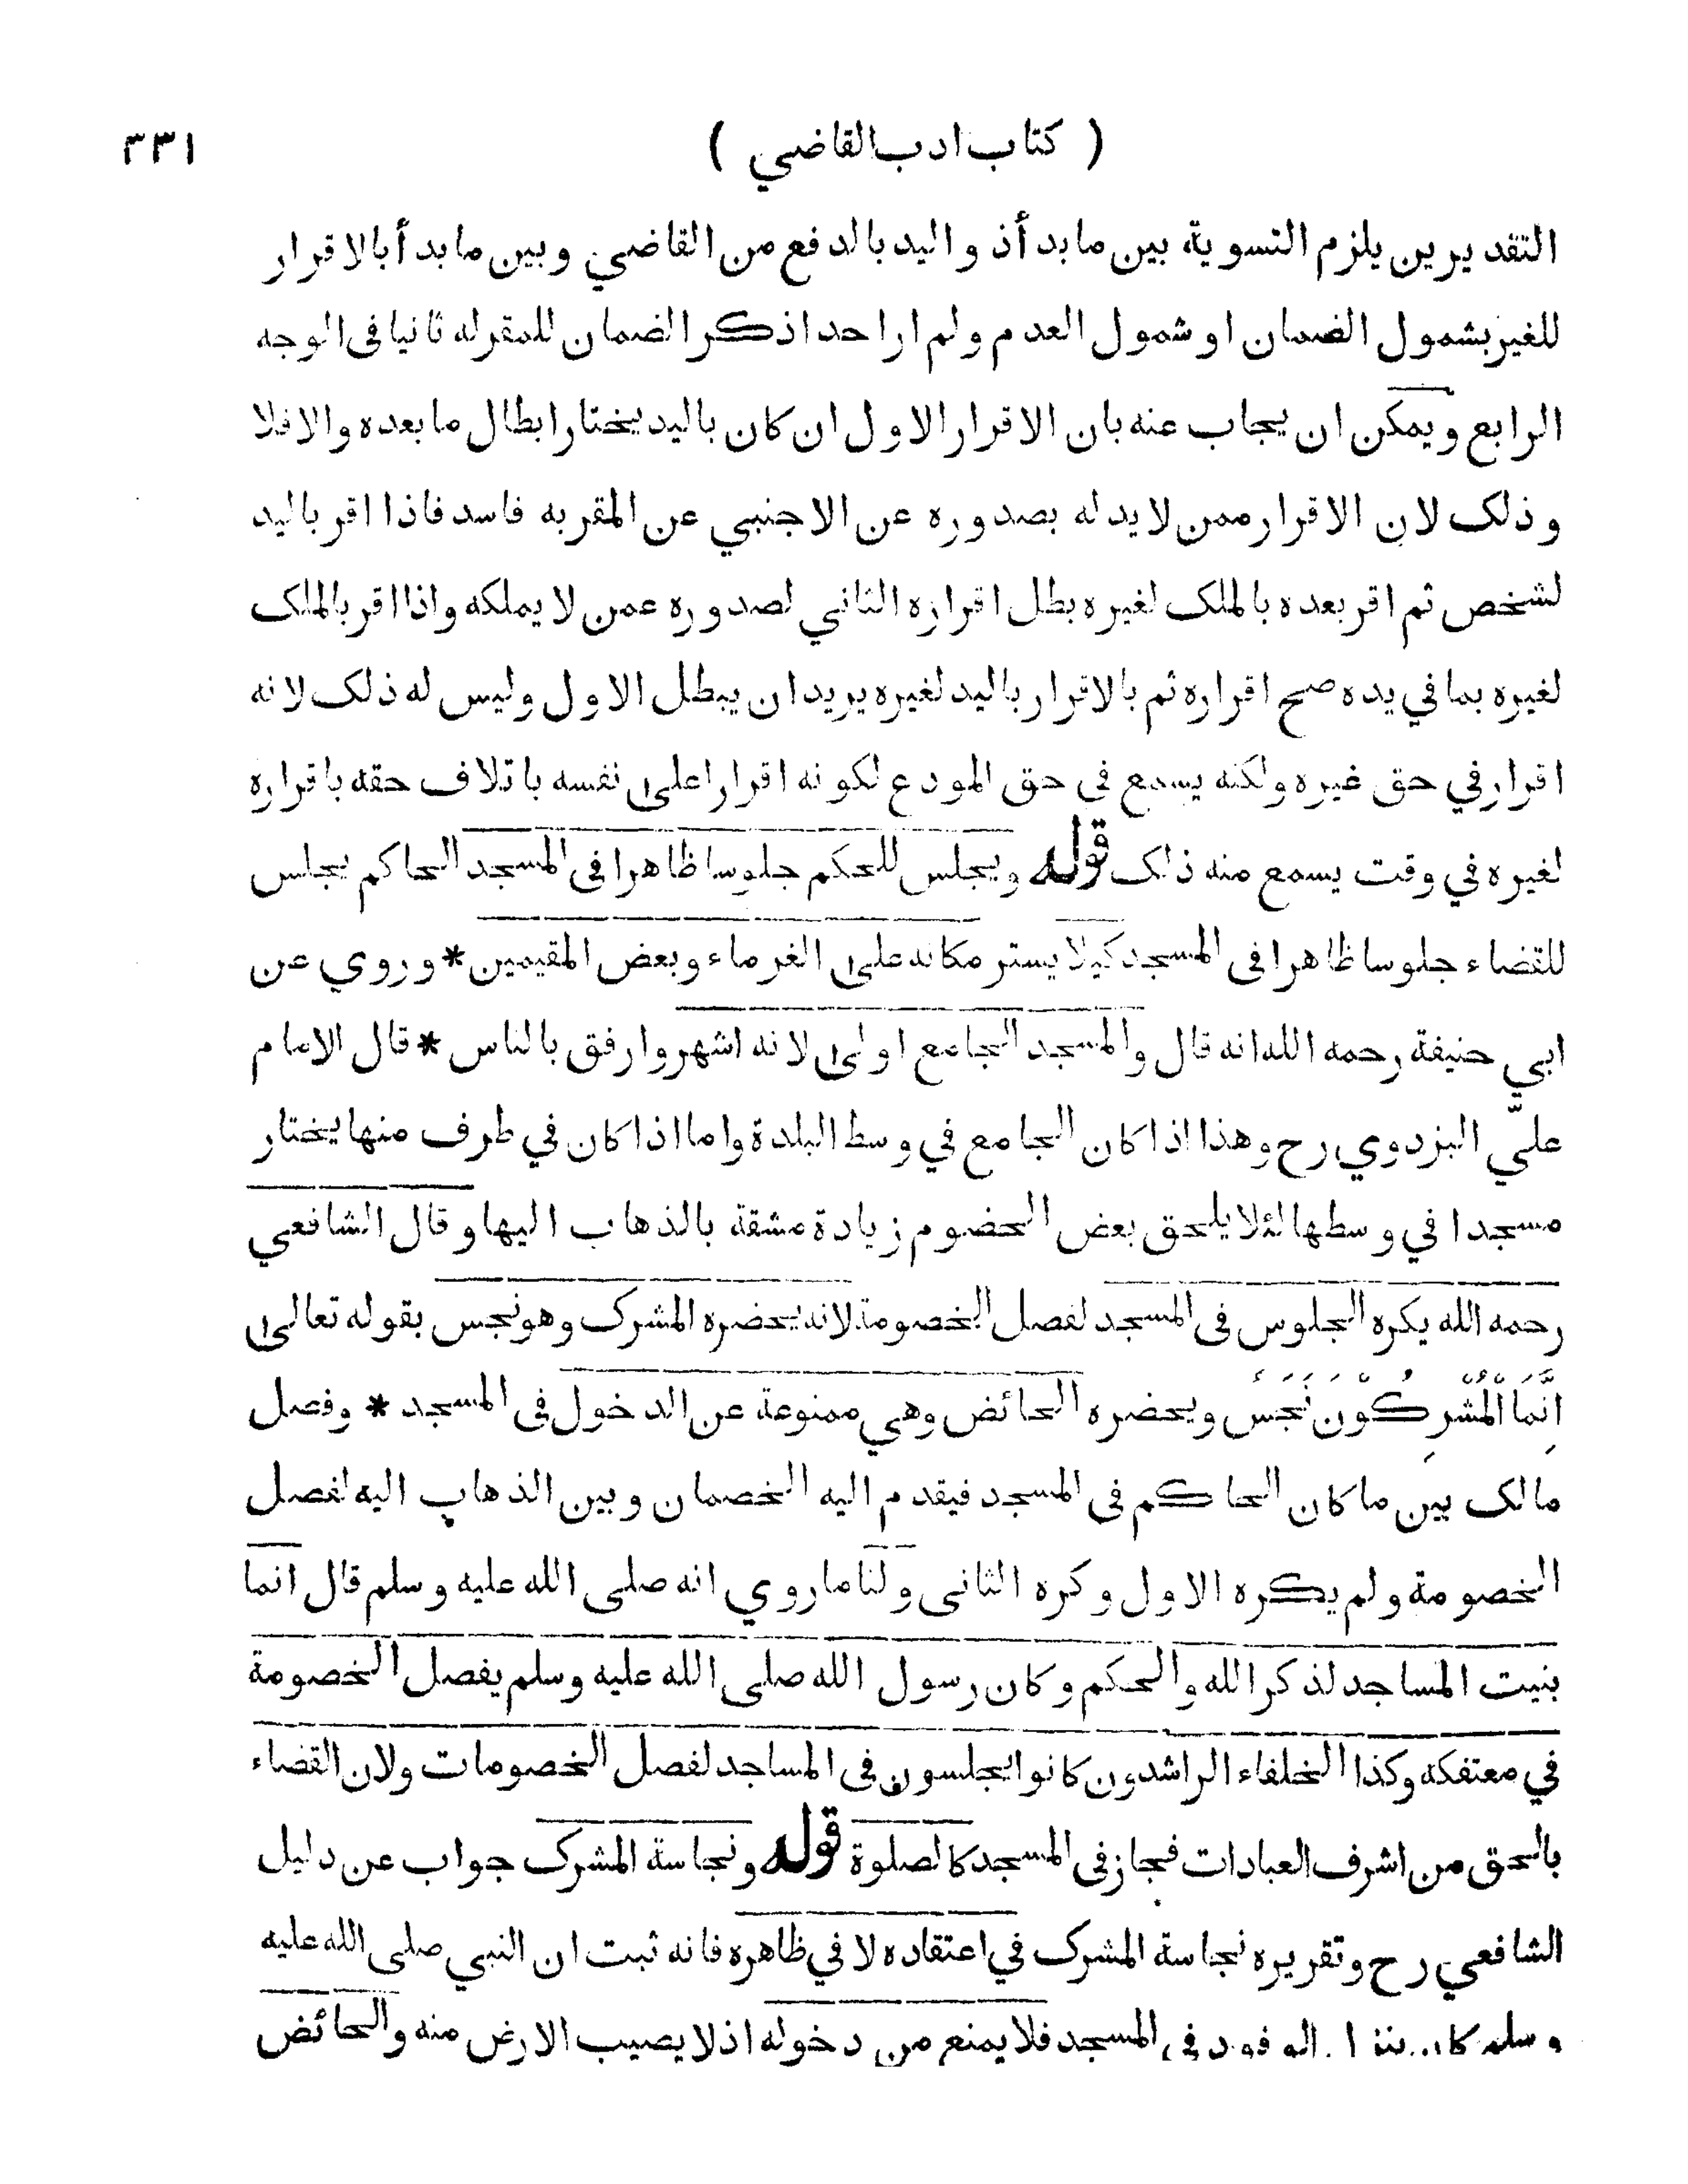 ( كتاب ادب القاضي )
٣٣١
التقديرين يلزم التسوية بين ما بدأ ذواليد بالدفع من القاضي وبين ما بدأ بالاقرار
للغير بشمول الضمان او شمول العدم ولم ار احدا ذكر الضمان للمقر له ثانيا فى الوجه
الرابع ويمكن ان يجاب عنه بان الاقرار الاول ان كان باليد يختار ابطال ما بعده والا فلا
وذلك لان الاقرار ممن لا يد له بصدوره عن الاجنبي عن المقر به فاسد فاذا اقر باليد
لشخص ثم اقر بعده بالملك لغيره بطل اقراره الثاني لصدوره عمن لا يملكه واذا اقر بالملك
لغيره بما في يده صح اقراره ثم بالاقرار باليد لغيره يريد ان يبطل الاول وليس له ذلك لانه
اقرار في حق غيره ولكنه يسمع فى حق المودع لكونه اقرارا على نفسه باتلاف حقه باقراره
لغيره في وقت يسمع منه ذلك قوله ويجلس للحكم جلوسا ظاهرا فى المسجد الحاكم يجلس
للقضاء جلوسا ظاهرا فى المسجد كيلا يستر مكانه على الغرماء وبعض المقيمين * وروي عن
ابي حنيفة رحمه الله انه قال والمسجد الجامع اولى لانه اشهر وارفق بالناس * قال الامام
عليّ البزدوي رح وهذا اذا كان الجامع في وسط البلدة واما اذا كان في طرف منها يختار
مسجدا في وسطها لئلا يلحق بعض الخضوم زيادة مشقة بالذهاب اليها وقال الشافعي
رحمه الله يكره الجلوس فى المسجد لفصل الخصومة لانه يحضره المشرك وهو نجس بقوله تعالى
اِنَّمَا الْمُشْرِكُوْنَ نَجَسٌ ويحضره الحائض وهي ممنوعة عن الدخول فى المسجد * وفصل
مالك بين ما كان الحاكم فى المسجد فيقدم اليه الخصمان وبين الذهاب اليه لفصل
الخصومة ولم يكره الاول وكره الثانى ولنا ما روي انه صلى الله عليه وسلم قال انما
بنيت المساجد لذكر الله والحكم وكان رسول الله صلى الله عليه وسلم يفصل الخصومة
في معتفكه وكذا الخلفاء الراشدون كانوا يجلسون فى المساجد لفصل الخصومات ولان القضاء
بالحق من اشرف العبادات فيجاز فى المسجد كالصلوة قوله ونجاسة المشرك جواب عن دليل
الشافعي رح وتقريره نجاسة المشرك في اعتقاده لا في ظاهره فانه ثبت ان النبي صلى الله عليه
وسلم كان الوفود فى المسجد فلا يمنع من دخوله اذ لا يصيب الارض منه والحائض